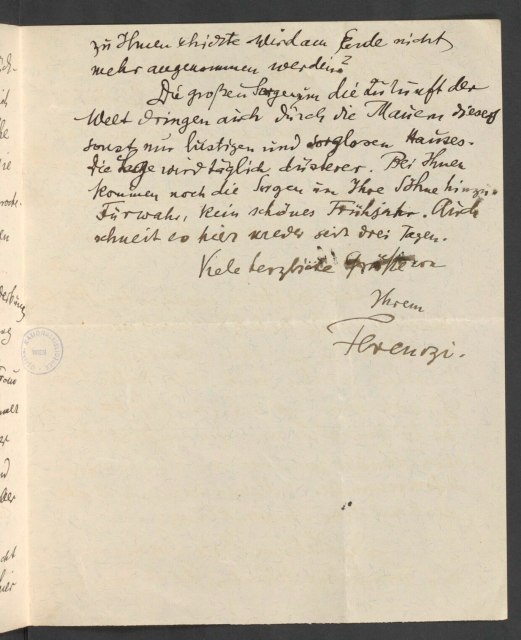 zu Ihnen schickte wird am Ende nicht
mehr angenommen werden?
Die großen Sorgen um die Zukunft der
Welt dringen auch durch die Mauern dieses
sonst nur lustigen und sorglosen Hauses.
Die Lage wird täglich düsterer. Bei Ihnen
kommen noch die Sorgen um Ihre Söhne hinzu.
Fürwahr, kein schönes Frühjahr. Auch
schneit es hier wieder seit drei Tagen.
Viele herzliche Grüße von
Ihrem
Ferenczi.